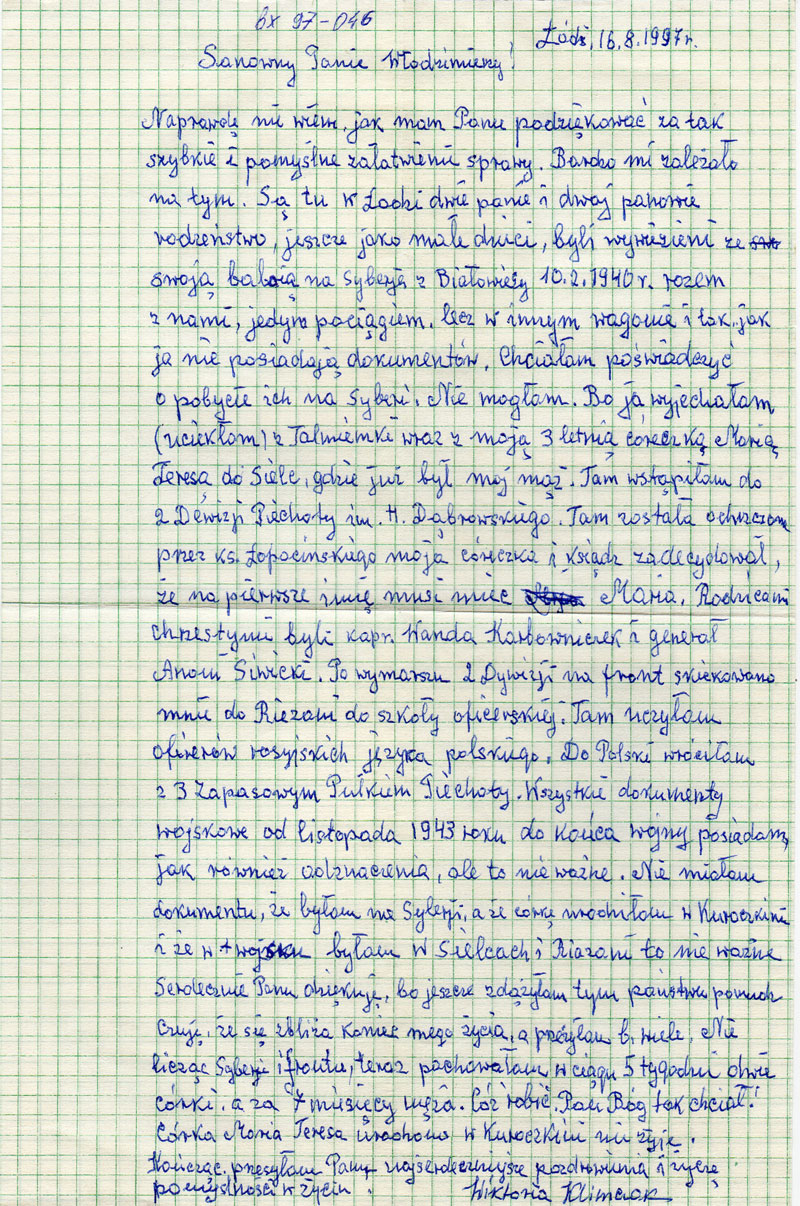 bx 97-046
Łódź, 16.8.1997r.
Sanowny Panie Włodzimierzy!
Naprawdę nie wiem, jak mam Panu podziękować za tak
szybkie i pomyślne załatwienie sprawy. Bardzo mi zależało
na tym. Są tu w Łodzi dwie panie i dwaj panowie
rodzeństwo, jeszcze jako małe dzieci, byli wywiezieni ze
swoją babcią na Syberją z Białowieży 10.2.1940r. razem
z nami, jedym pociągiem, lecz w innym wagonie i tak, jak
ja nie posiadają dokumentów. Chciałam poświadczyć
o pobycie ich na Syberji. Nie mogłam. Bo ja wyjechałam
(uciekłam) z Talmienki wraz z moją 3 letnią córeczką Marią
Teresą do Sielc, gdzie już był mój mąż. Tam wstąpiłam do
2 Dewizji Piechoty im. H. Dąbrowskiego. Tam została ochrzczona
przez ks. Łopacińskiego moja córeczka i ksiądz zadecydował,
że na pierwsze imię musi mieć Maria. Rodzicami
chrzestymi byli kapr. Wanda Karbowniczek i generał
Siwicki. Po wymarszu 2 Dywizji na front skiekowano
mnie do Riezani do szkoły oficerskiej. Tam uczyłam
oficerów rosyjskich języka polskiego. Do Polski wróciłam
z 3 Zapasowym Pułkiem Piechoty. Wszystkie dokumenty
wojskowe od listopada 1943 roku do końca wojny posiadam,
jak również odznaczenia, ale to nie ważne. Nie miałam
dokumentu, że byłam na Syberji, a że córkę urodziłam w Kuroczkini
i że w wojsku byłam w Sielcach i Riazani to nie ważne
Serdecznie Panu dziękuję, bo jeszcze zdążyłam tym państwu pomóc
Czuję, że się zbliża koniec mego życia, a przeżyłam b. wiele. Nie
licząc Syberji i frontu, teraz pochowałam w ciągu 5 tygodni dwie
córki, a za 7 miesięcy męża. Cóż robić. Pan Bóg tak chciał!
Córka Maria Teresa urodzona w Kuroczkini nie żyje.
Kończąc, przesyłam Panu najserdeczniejsze pozdrowienia i życzę
pomyślności w życiu. Wiktoria Klimczak